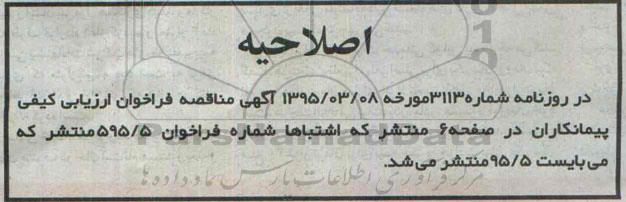 اصلاحیه
در روزنامه شماره۳۱۱۳مورخه ۱۳۹۵/۰۳/۰۸ آگهی مناقصه فراخوان ارزیابی کیفی
پیمانکاران در صفحه۶ منتشر که اشتباها شماره فراخوان ۵۹۵/۵منتشر که
می‌بایست ۹۵/۵منتشر می‌شد.
ParsNamadData
مرکز فرآوری اطلاعات پارس نماد داده ها